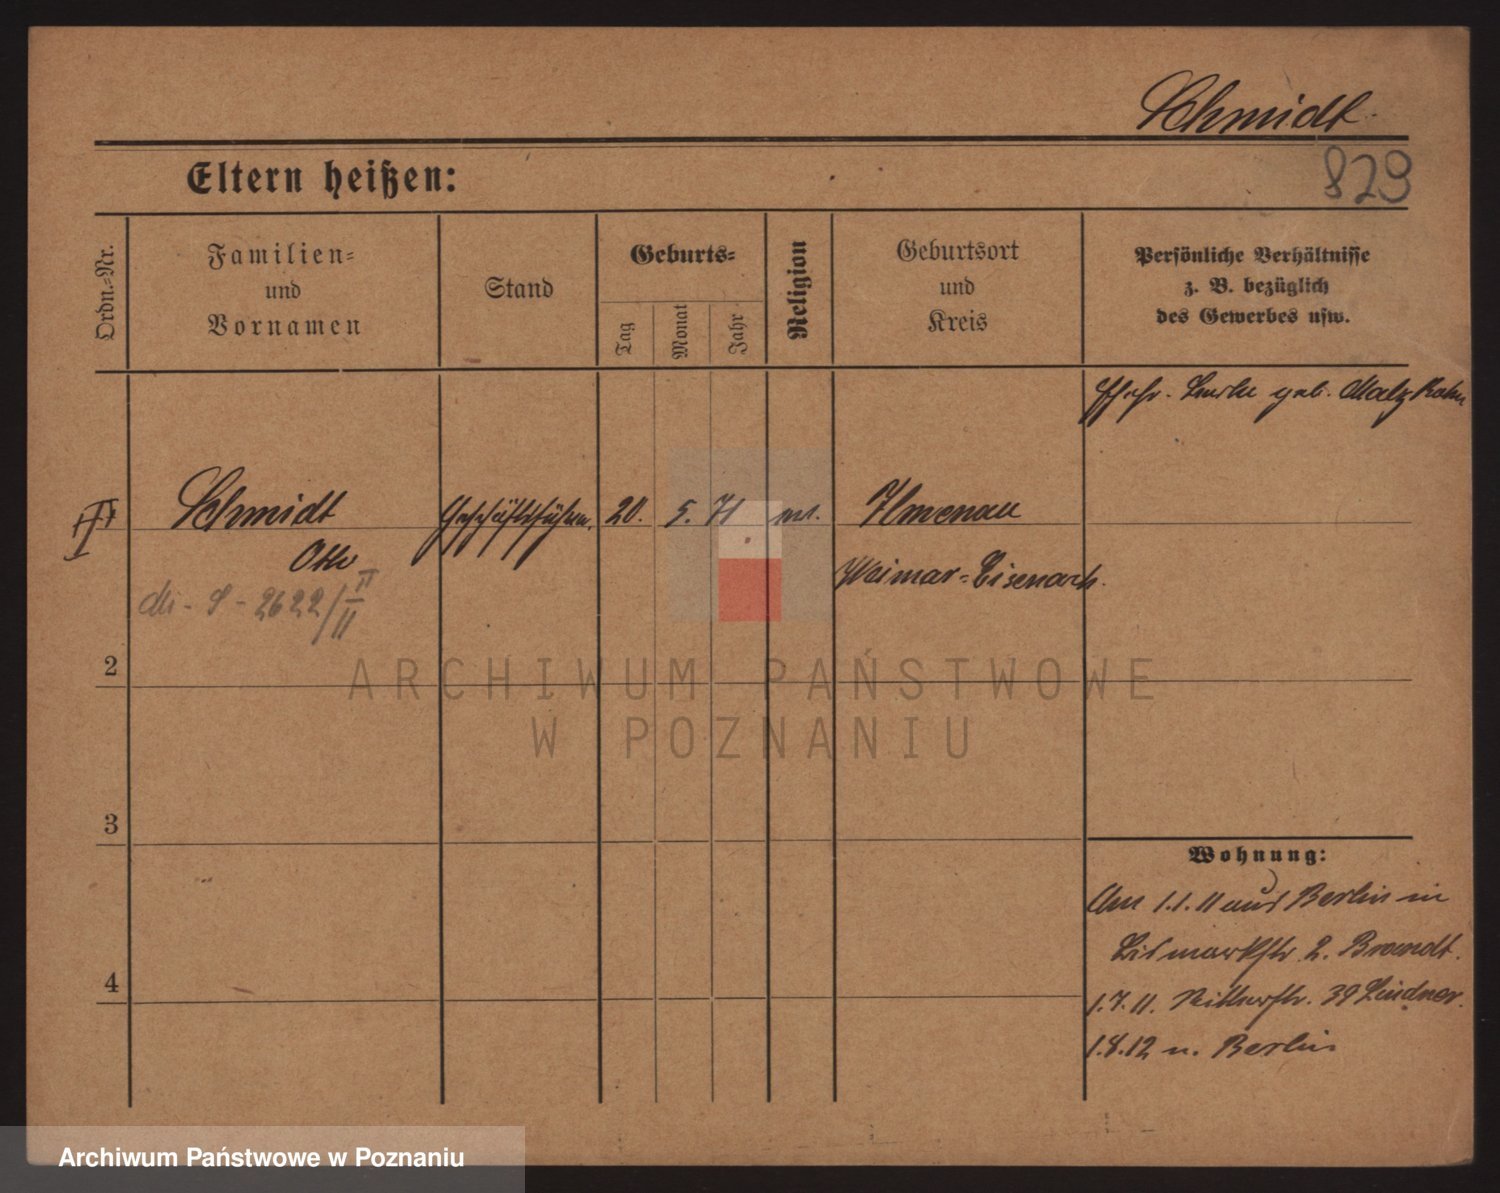 Schmidt
829
Eltern heißen:
Ordn.-Nr.
Familien-
und
Vornamen
Stand
Geburts-
Tag
Monat
Jahr
Religion
Geburtsort
und
Kreis
Persönliche Verhältnisse
z. B. bezüglich
des Gewerbes usw.
geb. Malzkahn
Schmidt
Geschäftsführer 20. 5. 71 Ilmenau
Otto
Weimar-Eisenach.
2622/II
II
2
ARCHIWUM PAŃSTWOWE
W POZNANIU
3
Wohnung:
Am 1.1.11 aus Berlin in
Bismarckstr. 2. Brandt.
4
1.7.11. Ritterstr. 39 Lindner.
1.8.12 n. Berlin
Archiwum Państwowe w Poznaniu